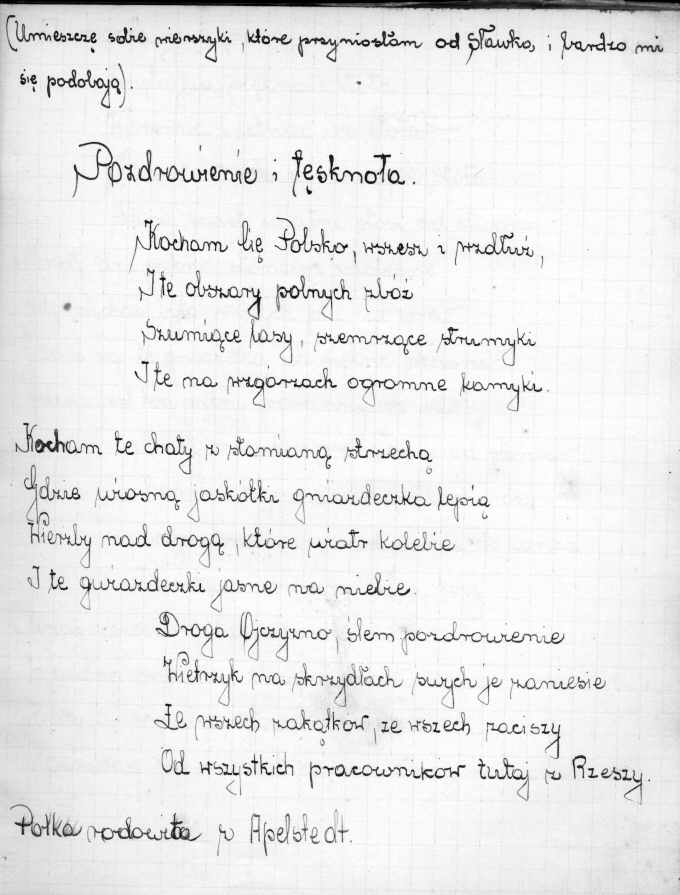 (Umieszczę sobie wierszyki, które przyniosłam od Sławka, i bardzo mi
się podobają).
Pozdrowienie i tęsknota.
Kocham Cię Polsko, wszesz i wzdłuż,
I te obszary polnych zbóż
Szumiące lasy, szemrzące strumyki
I te na wzgórzach ogromne kamyki.
Kocham te chaty z słomianą strzechą
Gdzie wiosną jaskółki gniazdeczka lepią
Wierzby nad drogą, które wiatr kolebie
I te gwiazdeczki jasne na niebie.
Droga Ojczyzno, ślem pozdrowienie
Wietrzyk na skrzydłach swych je zaniesie
Ze wszech zakątków, ze wszech zaciszy
Od wszystkich pracowników tutaj z Rzeszy.
Polka rodowita z Apelstedt.